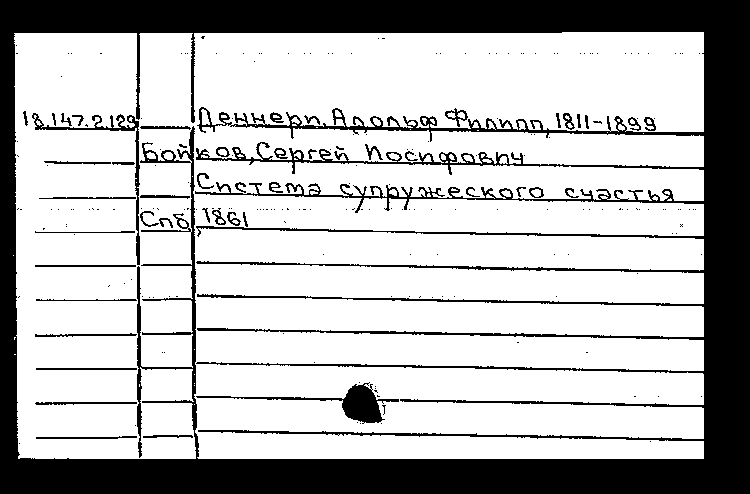 18.147.2.129 Деннери, Адольф Филипп, 1811-1899
Бойков, Сергей Иосифович
Система супружеского счастья
Спб, 1861